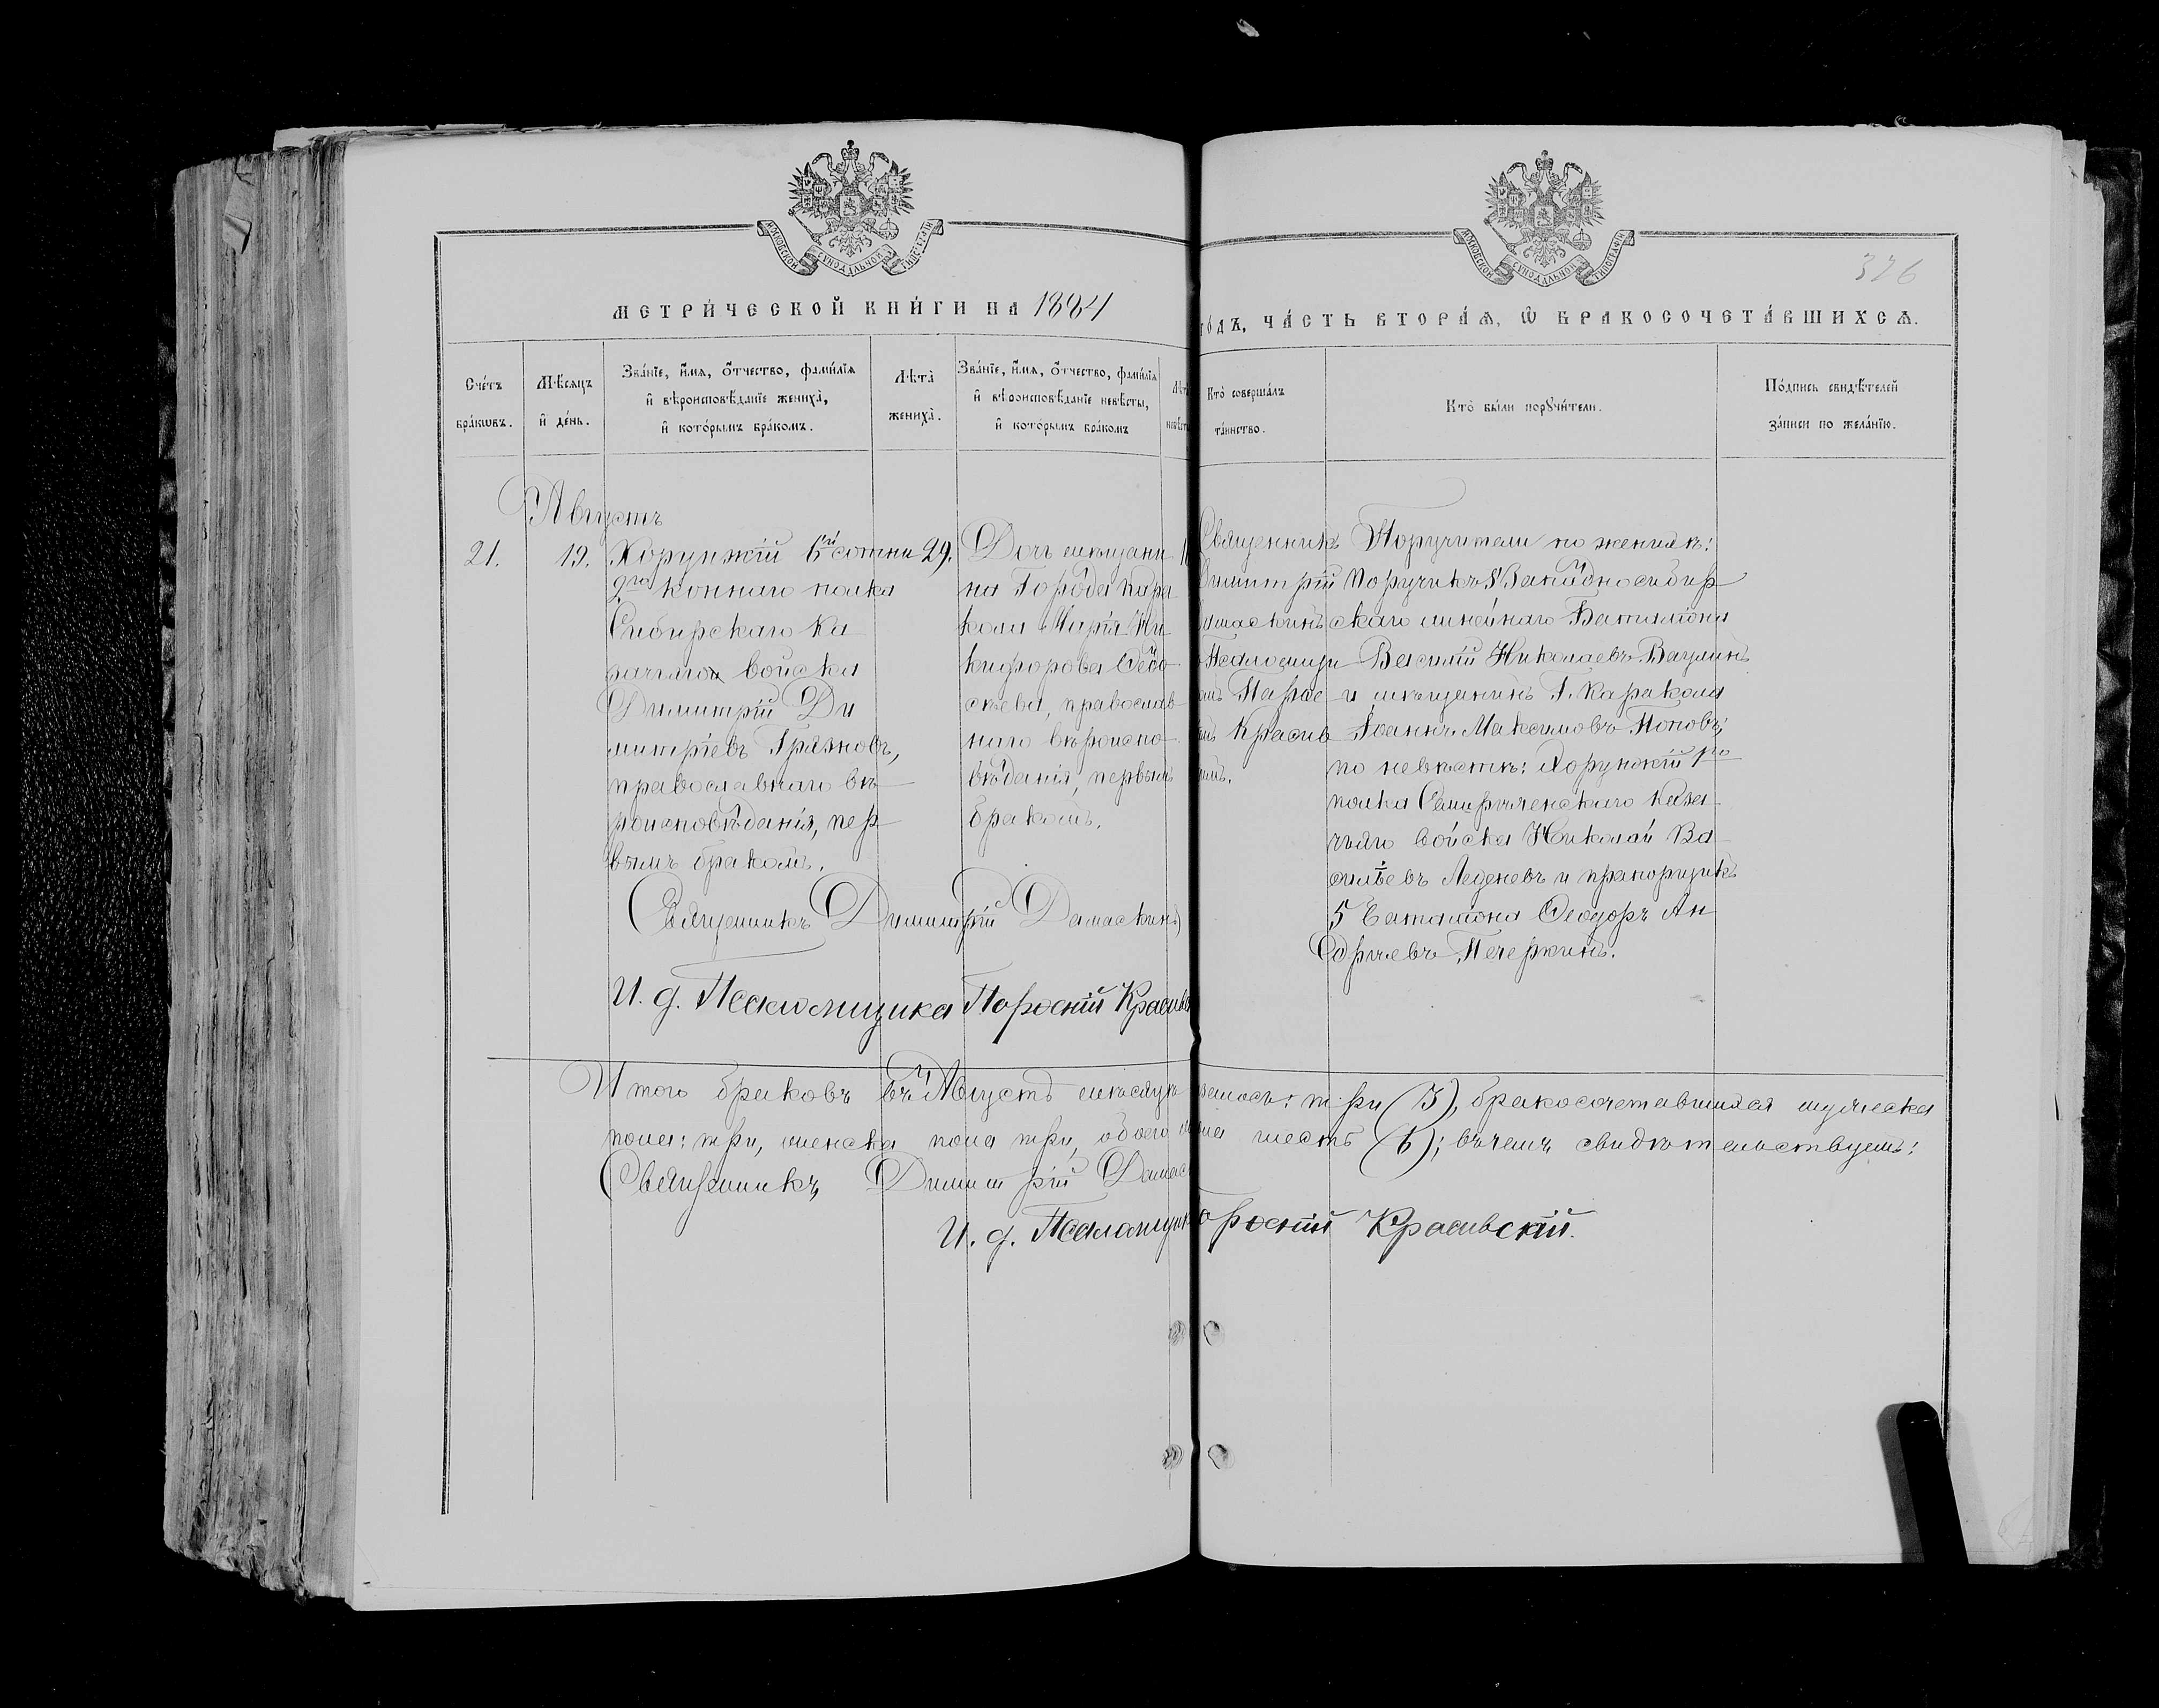 МОСКОВСКОЙ СѴНОДАЛЬНОЙ ТИПОГРАФІИ
МОСКОВСКОЙ СѴНОДАЛЬНОЙ ТИПОГРАФІИ
326
МЕТРИ́ЧЕСКОЙ КНИ́ГИ НА 1884
ГО́ДЪ, ЧА́СТЬ ВТОРА́Ѧ, Ѡ҆ БРАКОСОЧЕТА́ВШИХСѦ.
Сче́тъ бра́кѡвъ.
Мѣ́сѧцъ и҆ де́нь.
Зва́нїе, и҆́мѧ, ѻ҆́тчество, фами́лїѧ
и҆ вѣроисповѣ́данїе жениха̀,
и҆ кото́рымъ бра́комъ.
Лѣ̀та жениха̀.
Зва́нїе, и҆́мѧ, ѻ҆́тчество, фами́лїѧ
и҆ вѣроисповѣ́данїе невѣ́сты,
и҆ кото́рымъ бра́комъ
Кто̀ соверша́лъ
та́инство.
Кто̀ бы́ли порꙋчи́тели.
По́дпись свидѣ́телей
за́писи по жела́нїю.
Августъ
21.
19.
Хорунжій 6й сотни
9го коннаго полка
Сибирскаго Ка
зачьяго войска
Димитрій Ди
митріевъ Грязновъ,
православнаго вѣ
роисповѣданія, пер
вымъ бракомъ.
29.
Дочь мѣщани
на Города Кара
кола Марія Ни
кифорова
православ
наго вѣроиспо
вѣданія, первымъ
бракомъ.
Священникъ
Димитрій
Дамаскинъ
Псаломщи
Красив
Поручители по женихѣ:
Поручикъ Западносибир
скаго линейнаго Баталіона
Василій Николаевъ Ваулинъ
и мѣщанинъ Г. Каракола
Іоаннъ Максимовъ Поповъ;
по невѣстѣ: Хорунжій 1го
полка Семирѣченскаго Каза
чьяго войска Николай Ва
сильевъ Леденевъ и прапорщикъ
5 Баталіона Ѳеодоръ Ан
дреевъ Печеркинъ.
Священникъ Димитрій Дамаскинъ
И. д. Псаломщика Порфирій Красивск
Итого браковъ въ Августѣ мѣсяцѣ три (3), бракосочетавшихся мужеска
пола: три, женска пола три, обоего пола шесть (6); въ чемъ свидѣтельствуемъ:
Священникъ Димитрій Дамас
И. д. Псаломщик Красивскій.